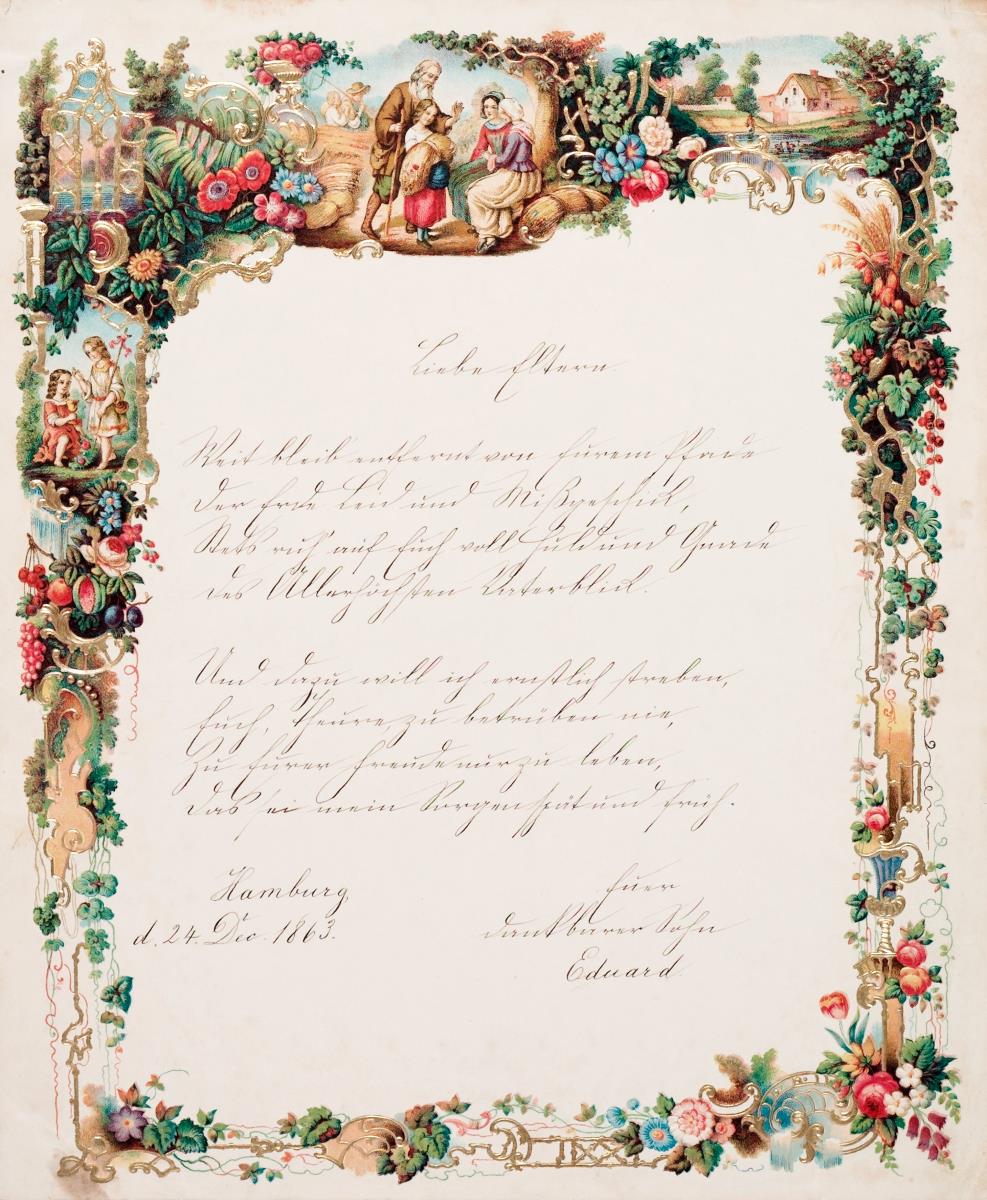 Liebe Eltern
Weit bleib' entfernt von Eurem Pfade
Der Erde Leid und Mißgeschick,
Stets ruh' auf Euch voll Huld und Gnade
Des Allerhöchsten Vaterblick.
Und dazu will ich ernstlich streben,
Euch, Theure, zu betrüben nie,
Zu Eurer Freude nur zu leben,
Das sei mein Sorgen spät und früh.
Hamburg
d. 24. Dec. 1863.
Euer
dankbarer Sohn
Eduard.